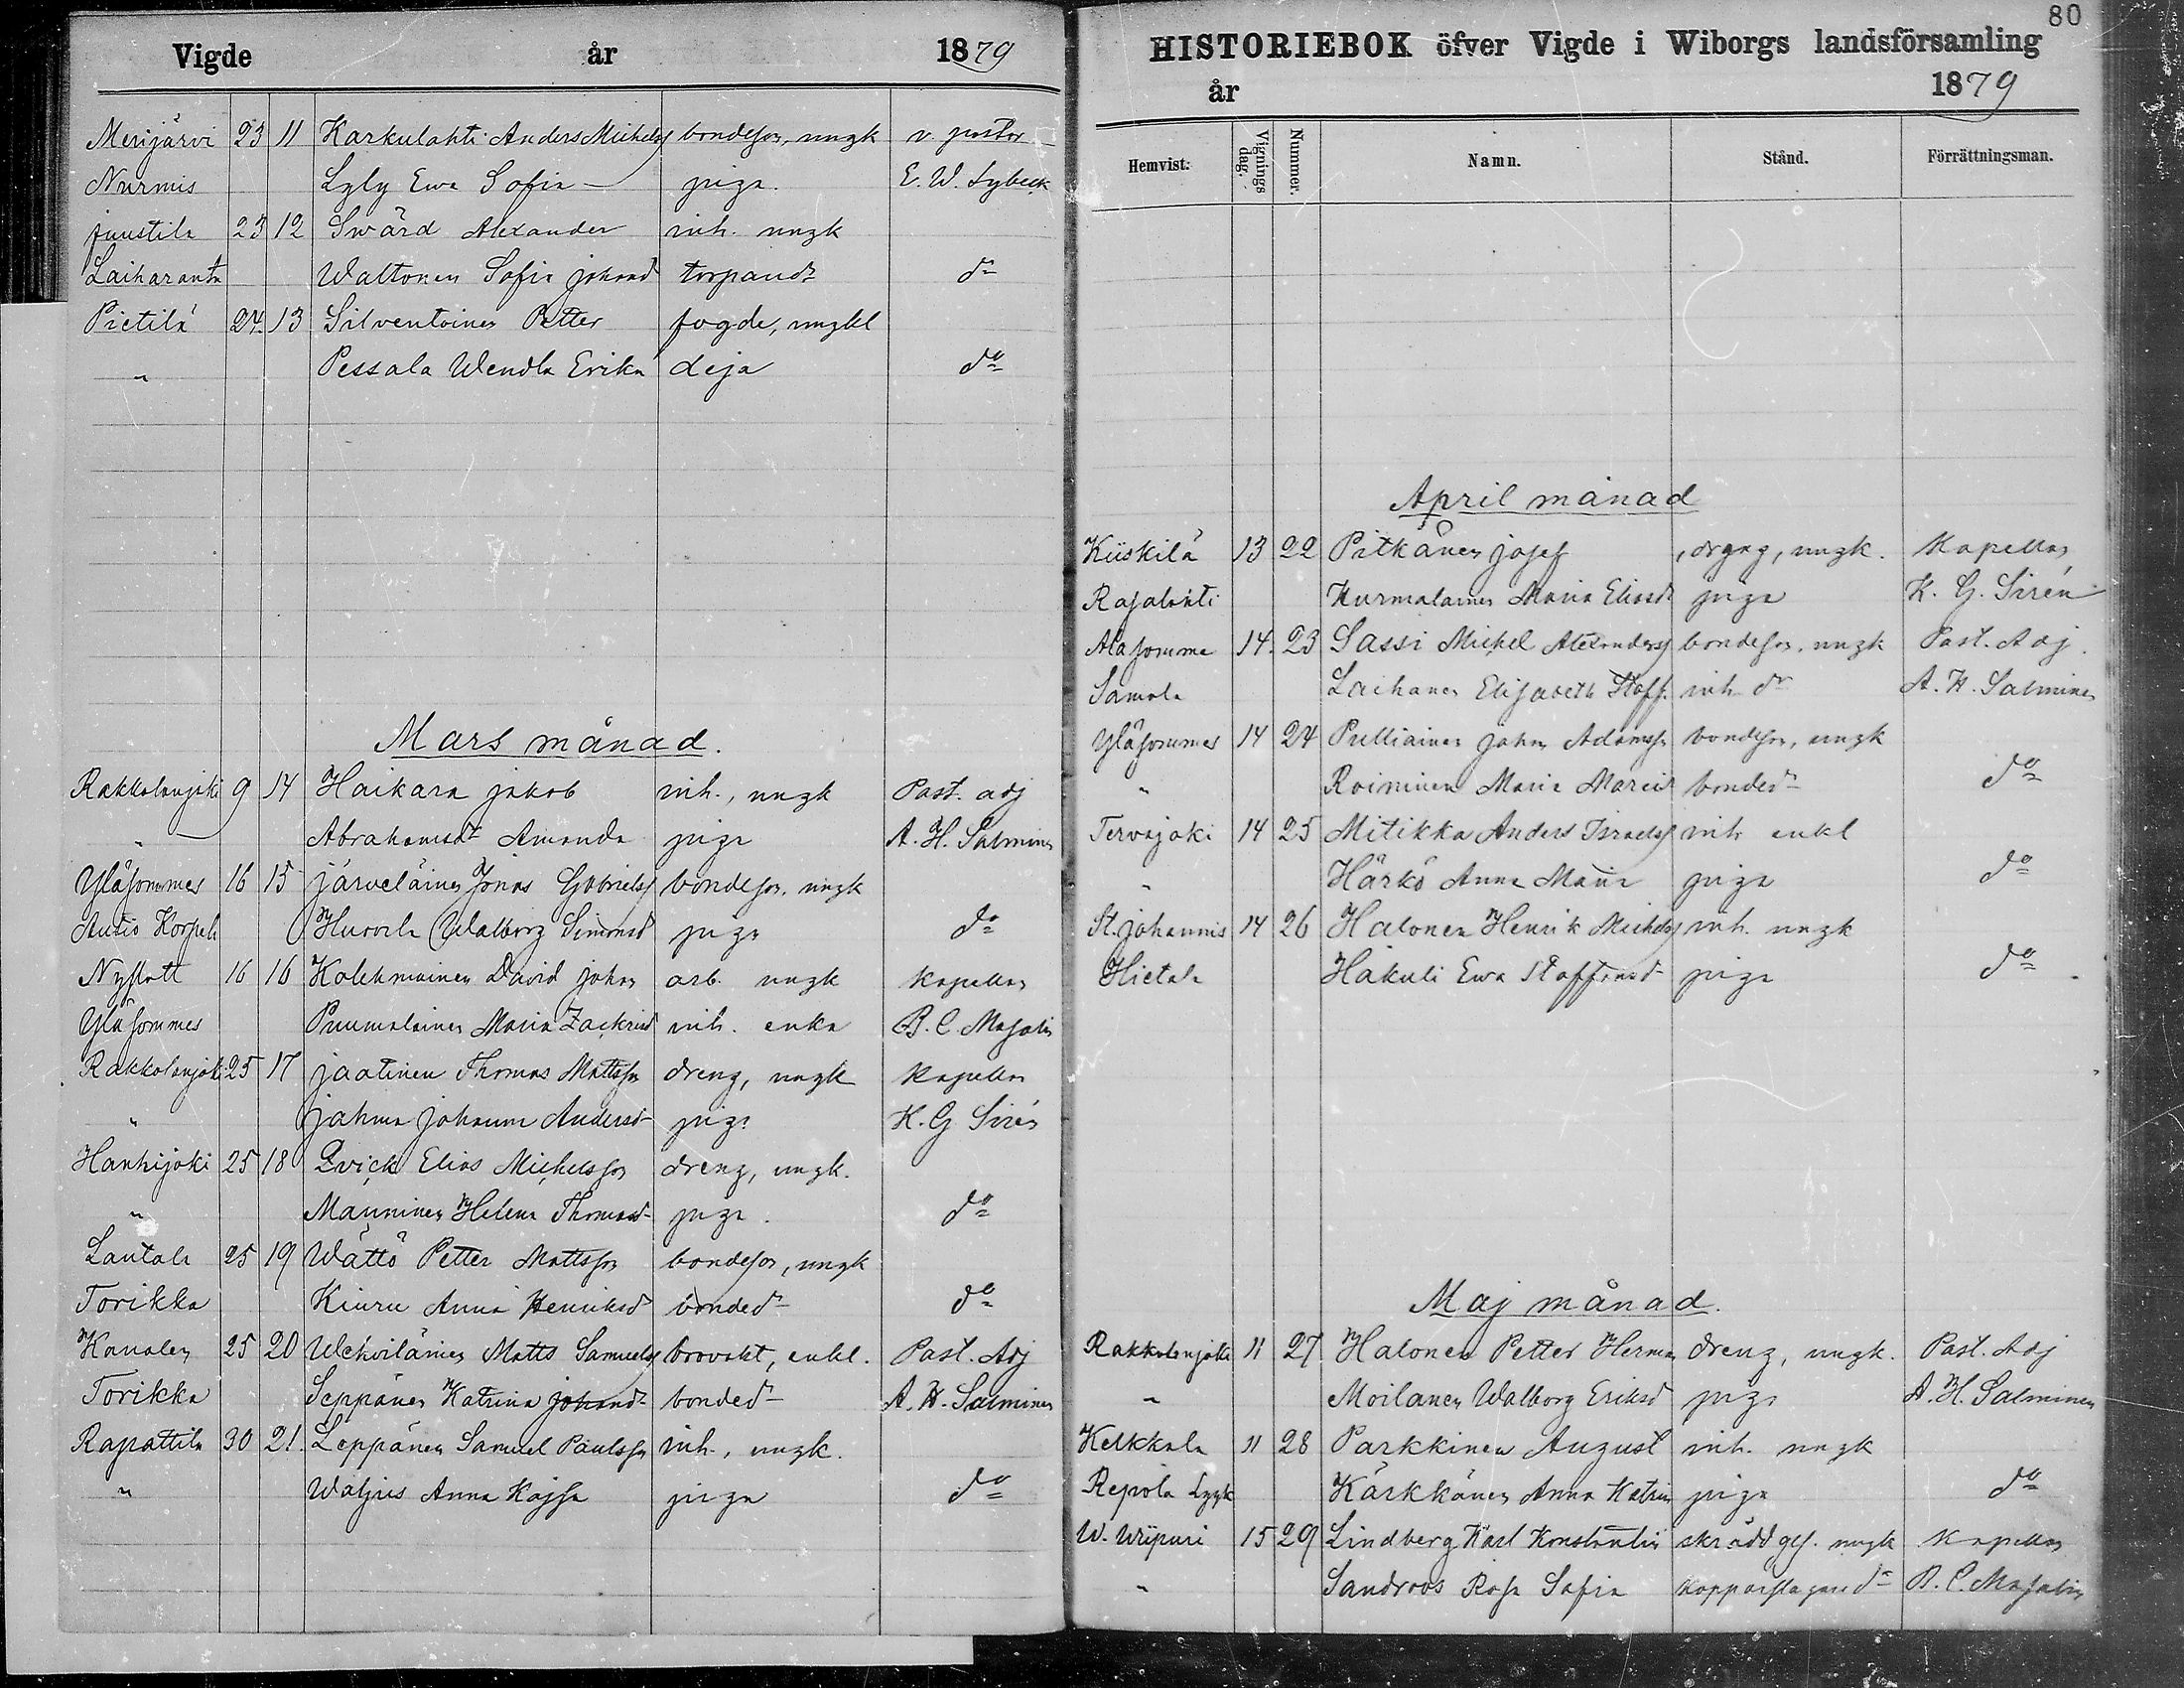 Vigde år 1879
Merijärvi 23 11 Karkulahti Anders Michelss bondeson, ungk v. pastor
Nurmis Lyly Ewa Sofia piga. E. W. Lybeck
Juustila 23 12 Swärd Alexander inh. ungk
Laiharanta Waltonen Sofia Johansd torpared:r do
Pietilä 24 13 Silventoinen Petter fogde, ungkl
" Pessala Wendla Erika deja do
Mars månad.
Rakkolanjoki 9 14 Haikara Jakob inh., ungk Past. adj
" Abrahamsdr Amanda piga A. H. Salminen
Yläsommes 16 15 Järveläinen Jonas Gabrielss bondeson, ungk
Autio Korpela Hurvila Walborg Simonsd piga do
Nyslott 16 16 Kolehmainen David Johan arb. ungk kapellan
Yläsommes Puumalainen Maria Zachrisd inh. enka B. C. Masalin
Rakkolanjoki 25 17 Jaatinen Thomas Mattsson dreng, ungk kapellan
" Jahma Johanna Andersd piga K. G Sirén
Hanhijoki 25 18 Qvick Elias Michelsson dreng, ungk.
" Manninen Helena Thomasd piga. do
Lautala 25 19 Wättö Petter Mattsson bondeson, ungk
Torikka Kiuru Anna Henriksd bonded do
Kanalen 25 20 Wehviläinen Matts Samuelss brovakt, enkl. Past. Adj
Torikka Seppänen Katrina Johansd bonded A. H. Salminen
Rapattila 30 21. Leppänen Samuel Paulsson inh., ungk.
" Waljus Anna Kajsa piga do
80
HISTORIEBOK öfver Vigde i Wiborgs landsförsamling
år 1879
Hemvist. Vignings dag. Nummer. Namn. Stånd. Förrättningsman.
April månad
Kiiskilä 13 22 Pitkänen Josef dreng, ungk. Kapellan
Rajalahti Kurmalainen Maria Eliasd piga K. G. Sirén
Alasomme 14. 23 Sassi Michel Alexanderss bondeson, ungk Past. Adj.
Samola Laihanen Elisabeth Staff. inh. dr A. H. Salminen
Yläsommes 14 24 Pulliainen Johan Adamsson bondeson, ungk
" Roiminen Maria Marcid bonded do
Tervajoki 14 25 Mitikka Anders Israelss inh enkl
" Härkö Anna Maria piga do
St. Johannis 14 26 Halonen Henrik Michelss inh. ungk
Hietala Hakuli Ewa Staffansd piga do
Maj månad.
Rakkolanjoki 11 27 Halonen Petter Herman dreng, ungk. Past. Adj
" Moilanen Walborg Eriksd piga A. H. Salminen
Kelkkala 11 28 Parkkinen August inh. ungk
Repola Kärkkänen Anna Katrin piga do
W. Wiipuri 15 29 Lindberg Karl Konstantin skräddges. ungk kapellan
" Sandroos Rosa Sofia kopparslagared B. C. Masalin